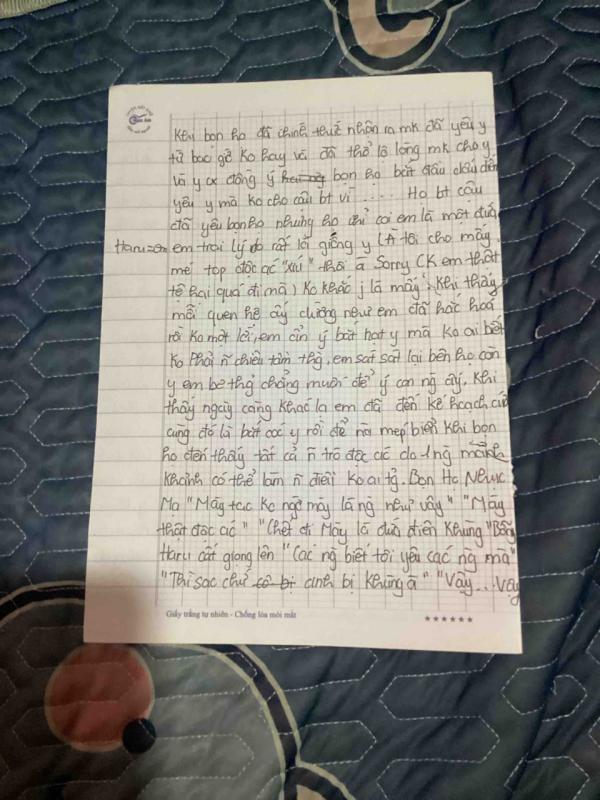 Khi bọn họ đã chính thức nhận ra mk đã yêu y
từ bao giờ ko hay và đã thổ lộ lòng mk cho y
và y cx đồng ý bọn họ bắt đầu dấu diếm
yêu y mà ko cho cậu bt vì ..... Họ bt cậu
đã yêu bọn họ nhưng họ chỉ coi em là một đứa
Haru=em em trai lý do rất là giống y (À tôi cho mấy
mé top độc ác "xíu" thôi ạ Sorry CK em thật
tệ hại quá đi mà) ko khác j là mấy. Khi thấy
mối quen hệ ấy dường như em đã hắc hoá
rồi ko một lời, em ý bắt hạt y mà ko ai biết
ko phải n chiều tâm thg, em sát sát lại bên họ còn
y em be thg chẳng muốn để ý con ng ấy. Khi
thấy ngày càng khác lạ em đã đến kế hoạch cuối
cùng đó là bắt cóc y rồi để ra mép biển khi bọn
họ đến thấy tất cả n trò độc ác do 1 ng mảnh
khảnh có thể làm n điều ko ai tg. Bọn Họ
"Mày tao ko ngờ mày là ng như vậy" "Mày
thật độc ác" "Chết đi Mày là đứa điên khùng" Bỗng
Haru cất giọng lên "Các ng biết tôi yêu các ng mà"
"Thì sao chứ cô bị anh bị khùng à" "Vậy...Vậy
Giấy trắng tự nhiên - Chống lóa mỏi mắt